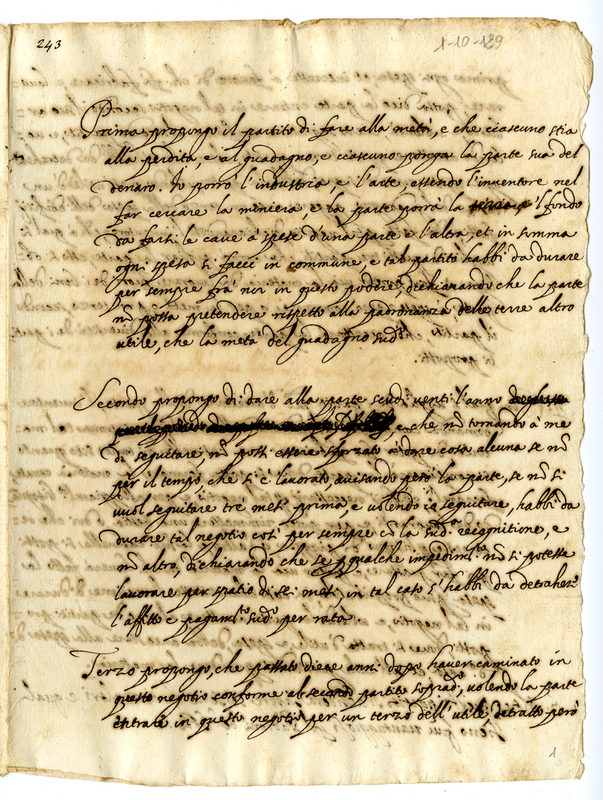 243
1-10-129
Prima propongo il partito di fare alla metà, e che ciascuno stia
alla perdita, e al guadagno, e ciascuno ponga la parte sua del
denaro. Io porrò l'industria, e l'arte, essendo l'inventore nel
far cercare la miniera, e la parte porrà la l'fondo
da farsi le cave à spese d'una parte e l'altra, et in summa
ogni spesa si facci in commune, e tal partito habbi da durare
per sempre frà noi in questo podere, dichiarando che la parte
nõ possa pretendere rispetto alla padronanza delle terre altro
utile, che la metà del guadagno sudº
Secondo propongo di dare alla parte scudi venti l'anno
, e che nõ tornando à me
di seguitare, nõ possi essere sforzato à dare cosa alcuna se nõ
per il tempo che si è lavorato, avisando però la parte, se nõ si
vuol seguitare trè mesi prima, e volendo io seguitare, habbi da
durare tal negotio così per sempre cõ la sudª recognitione, e
nõ altro, dichiarando che se p qualche impedimtº nõ si potesse
lavorare per spatio di sei mesi, in tal caso s'habbi da detraher
l'affitto e pagamtº sudº per rata.
Terzo propongo, che passato diece anni dopo haver caminato in
questo negotio conforme al secondo partito sopradº, volendo la parte
entrare in questo negotio per un terzo dell'utile, detratto però
1